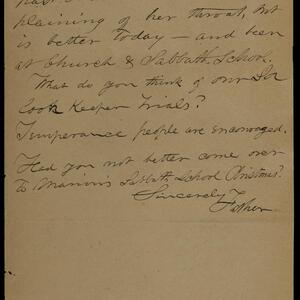 plaining of her throat, but
is better today — and been
at Church & Sabbath School.
What do you think of our
Keeper Trials?
Temperance people are encouraged.
Had you not better come over
to Sabbath School Christmas?
Sincerely
Father